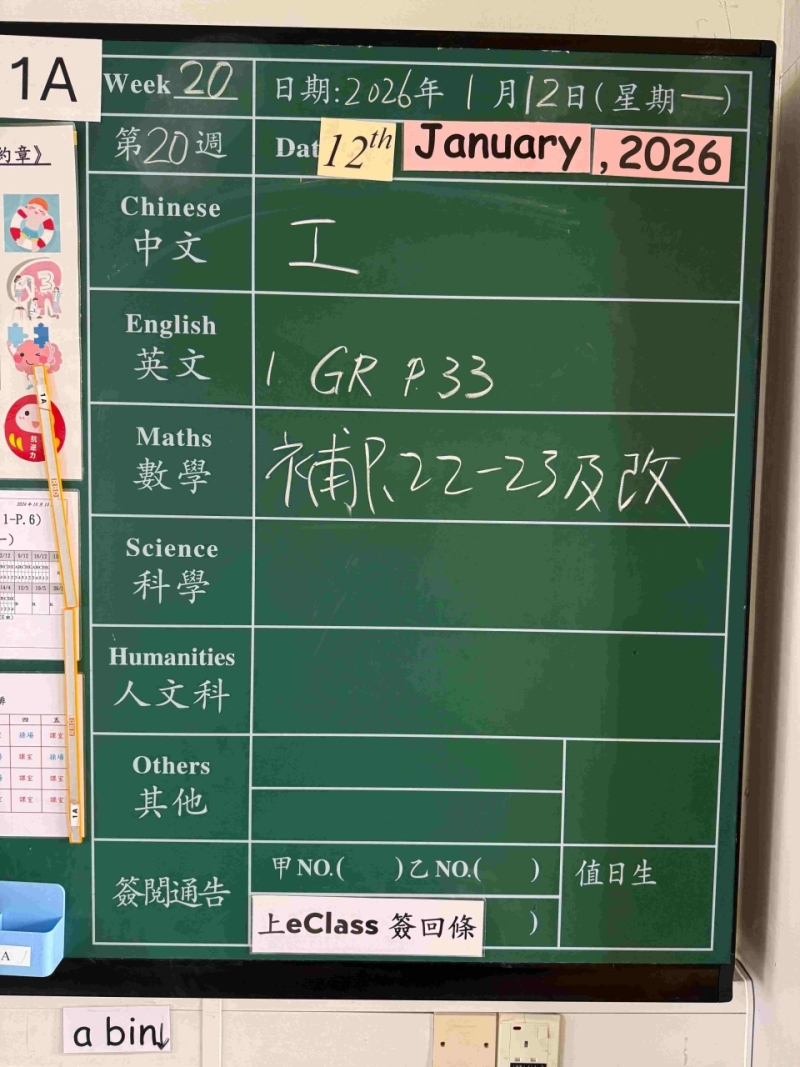 1A
Week 20
日期:2026年 1月12日(星期一)
第20週
Dat 12th January , 2026
約章》
Chinese
中文
工
English
英文
1 GR P.33
Maths
數學
補P.22-23及改
Science
科學
Humanities
人文科
Others
其他
簽閱通告
甲NO.( )乙NO.( )
值日生
上eClass 簽回條
)
抗逆力
1A
1-P.6)
四 五
操場 課室
課室 操場
課室 課室
課室 課室
1A
A
a bin